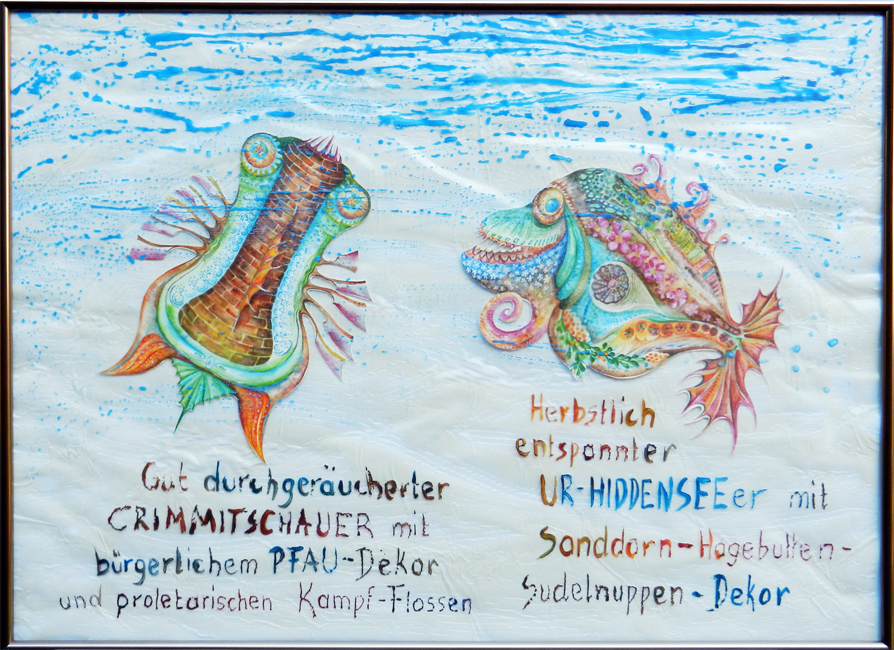 Gut durchgeräucherter
CRIMMITSCHAUER mit
bürgerlichem PFAU-Dekor
und proletarischen Kampf-Flossen
Herbstlich
entspannter
UR-HIDDENSEEer mit
Sanddorn-Hagebutten-
Sudelnuppen-Dekor